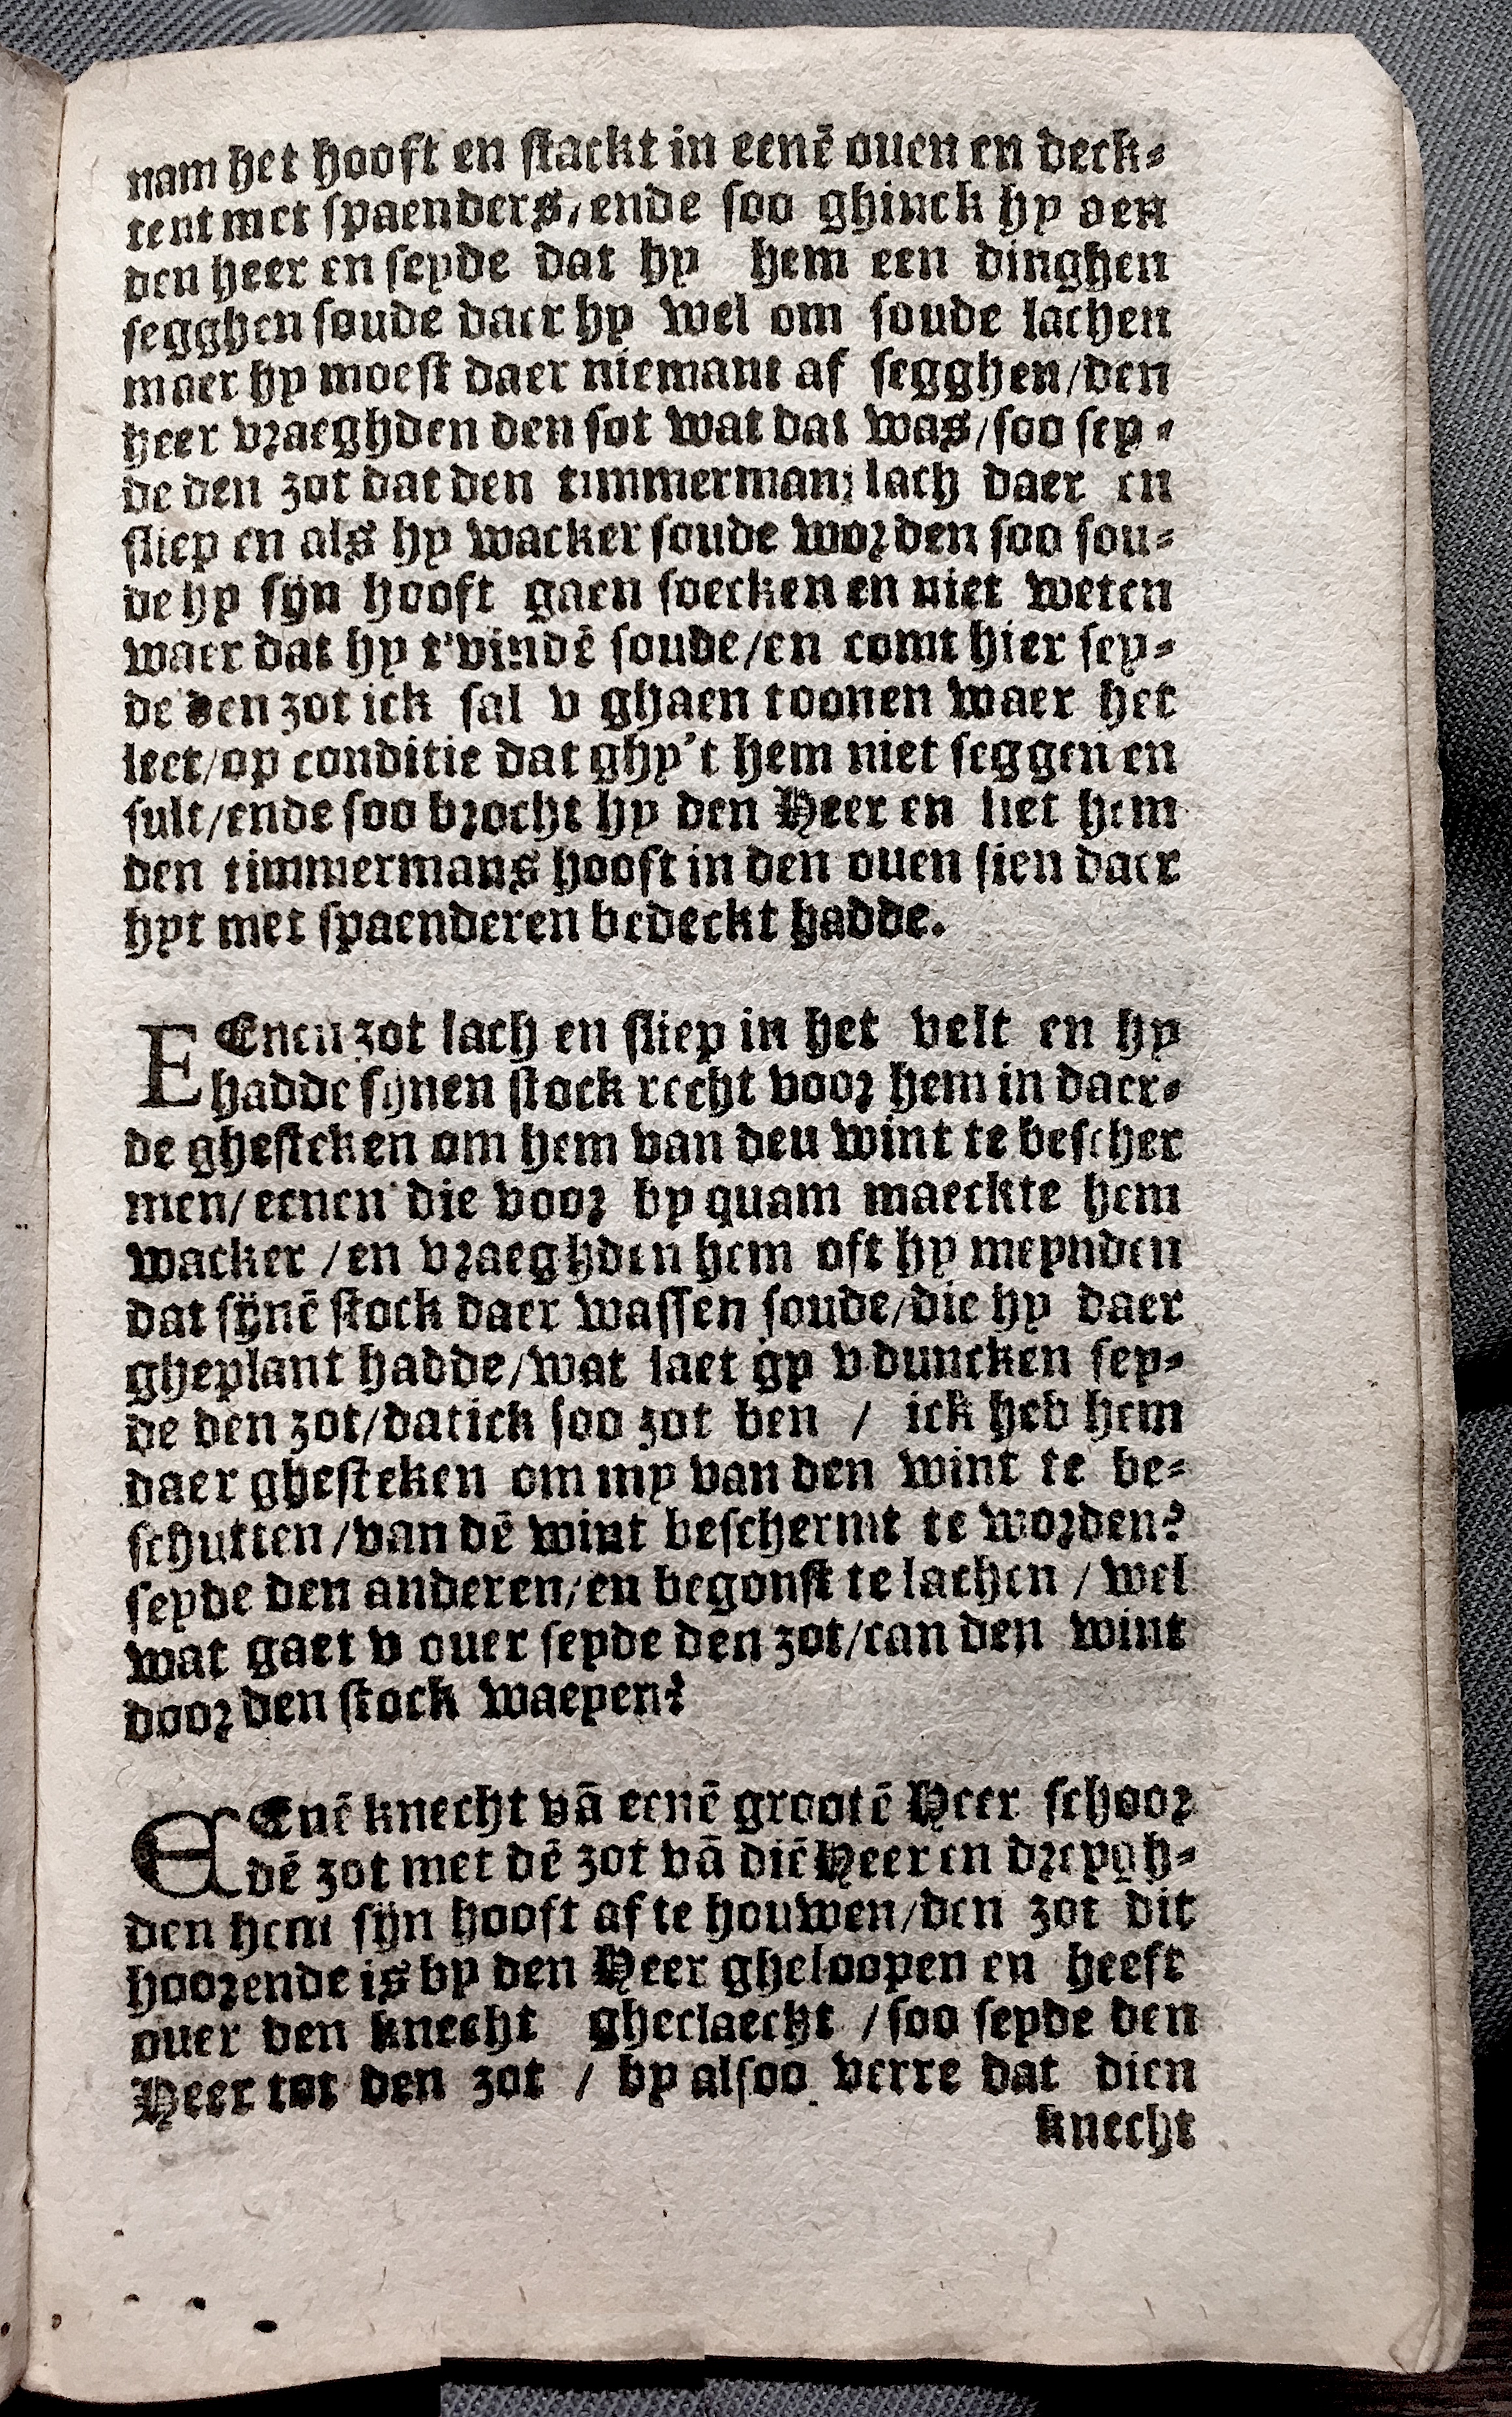 nam het hooft en stackt in eenē ouen en deck-
tent met spaenders, ende soo ghinck hy aen
den heer en seyde dat hy hem een dinghen
segghen soude daer hy wel om soude lachen
maer hy moest daer niemant af segghen/den
heer vraeghden den sot wat dat was/soo sey-
de den zot dat den timmerman; lach daer en
sliep en als hy wacker soude worden soo sou-
de hy sÿn hooft gaen soecken en niet weten
waer dat hy t'vindē soude/en comt hier sey-
de den zot ick sal v ghaen toonen waer het
leet/op conditie dat ghy't hem niet seggen en
sult/ende soo brocht hy den Heer en liet hem
den timmermans hooft in den ouen sien daer
hyt met spaenderen bedeckt hadde.

EEnen zot lach en sliep in het velt en hy
hadde sÿnen stock recht voor hem in daer-
de ghesteken om hem van deu wint te bescher
men/eenen die voor by quam maeckte hem
wacker /en vraeghden hem oft hy meynden
dat sÿnē stock daer wassen soude/die hy daer
gheplant hadde/wat laet gy v duncken sey-
de den zot/dat ick soo zot ben / ick heb hem
daer ghesteken om my van den wint te be-
schutten/van dē wint beschermt te worden?
seyde den anderen/en begonst te lachen / wel
wat gaet v ouer seyde den zot/can den wint
door den stock waeyen?

EEnē knecht vā eenē grootē Heer schoor
dē zot met dē zot vā diē Heer en dreygh-
den hem sÿn hooft af te houwen/den zot dit
hoorende is by den Heer gheloopen en heeft
ouer den knecht gheclaeckt /soo seyde den
Heer tot den zot / by alsoo verre dat dien
knecht